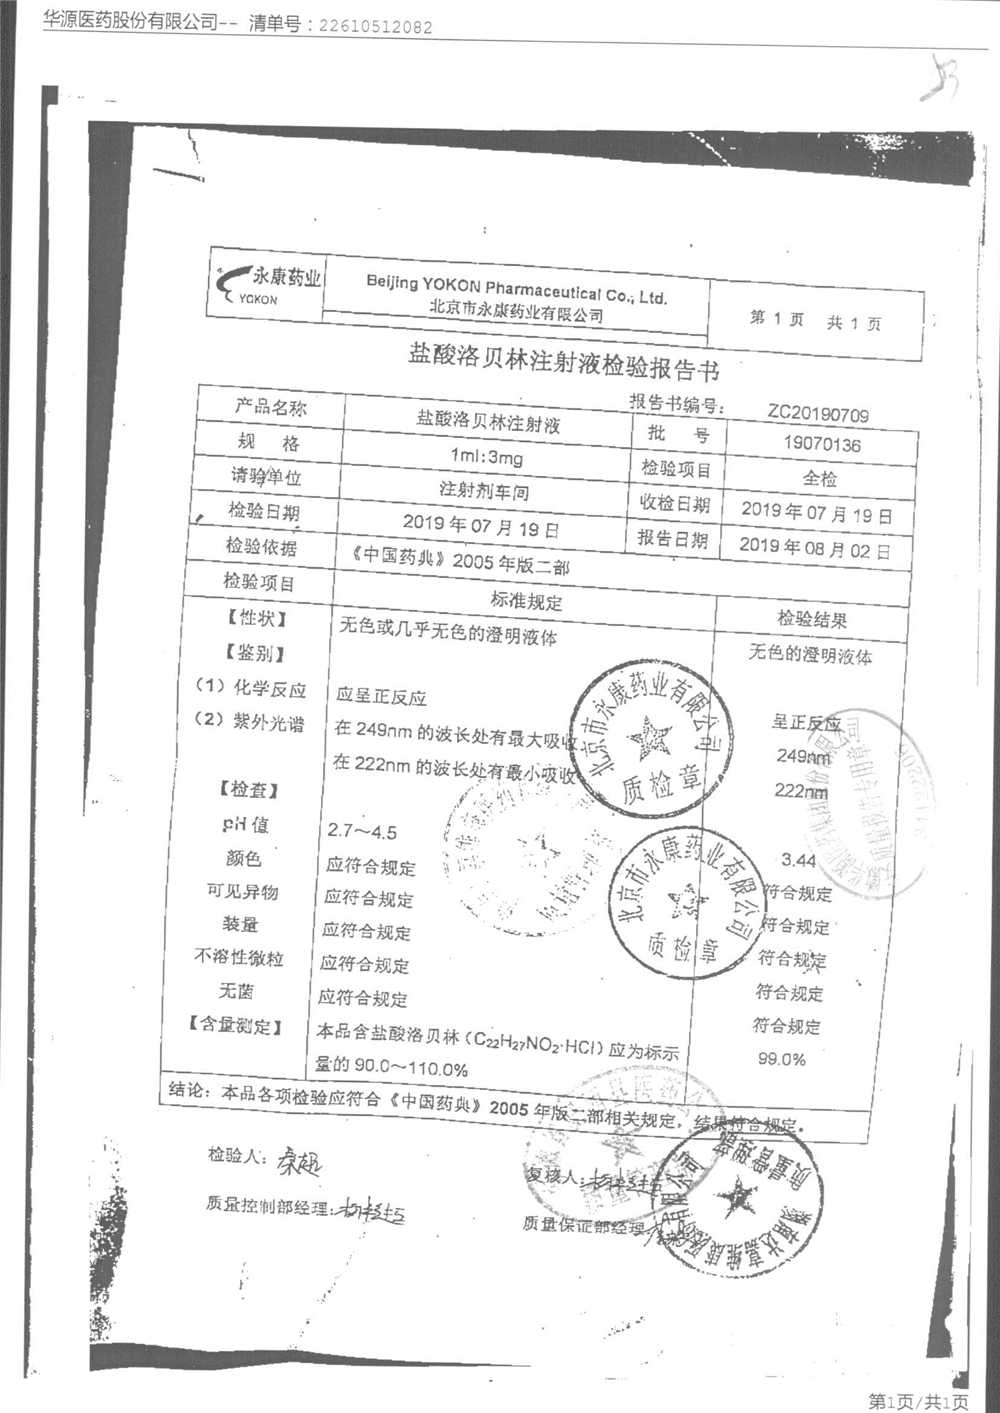 华源医药股份有限公司-- 清单号：22610512082
永康药业
YOKON
Beijing YOKON Pharmaceutical Co., Ltd.
北京市永康药业有限公司
第 1 页 共 1 页
盐酸洛贝林注射液检验报告书
报告书编号： ZC20190709
产品名称 盐酸洛贝林注射液 批 号 19070136
规 格 1ml:3mg 检验项目 全检
请验单位 注射剂车间 收检日期 2019 年 07 月 19 日
检验日期 2019 年 07 月 19 日 报告日期 2019 年 08 月 02 日
检验依据 《中国药典》2005 年版二部
检验项目 标准规定 检验结果
【性状】 无色或几乎无色的澄明液体 无色的澄明液体
【鉴别】
（1）化学反应 应呈正反应 呈正反应
（2）紫外光谱 在 249nm 的波长处有最大吸收 249nm
在 222nm 的波长处有最小吸收 222nm
【检查】
pH 值 2.7～4.5 3.44
颜色 应符合规定 符合规定
可见异物 应符合规定 符合规定
装量 应符合规定 符合规定
不溶性微粒 应符合规定 符合规定
无菌 应符合规定 符合规定
【含量测定】 本品含盐酸洛贝林（C22H27NO2·HCl）应为标示 99.0%
量的 90.0～110.0%
结论：本品各项检验应符合《中国药典》2005 年版二部相关规定，结果符合规定。
北京市永康药业有限公司
质检章
北京市永康药业有限公司
质检章
检验人：
复核人：
质量控制部经理：
质量保证部经理：
质量管理部
第1页/共1页